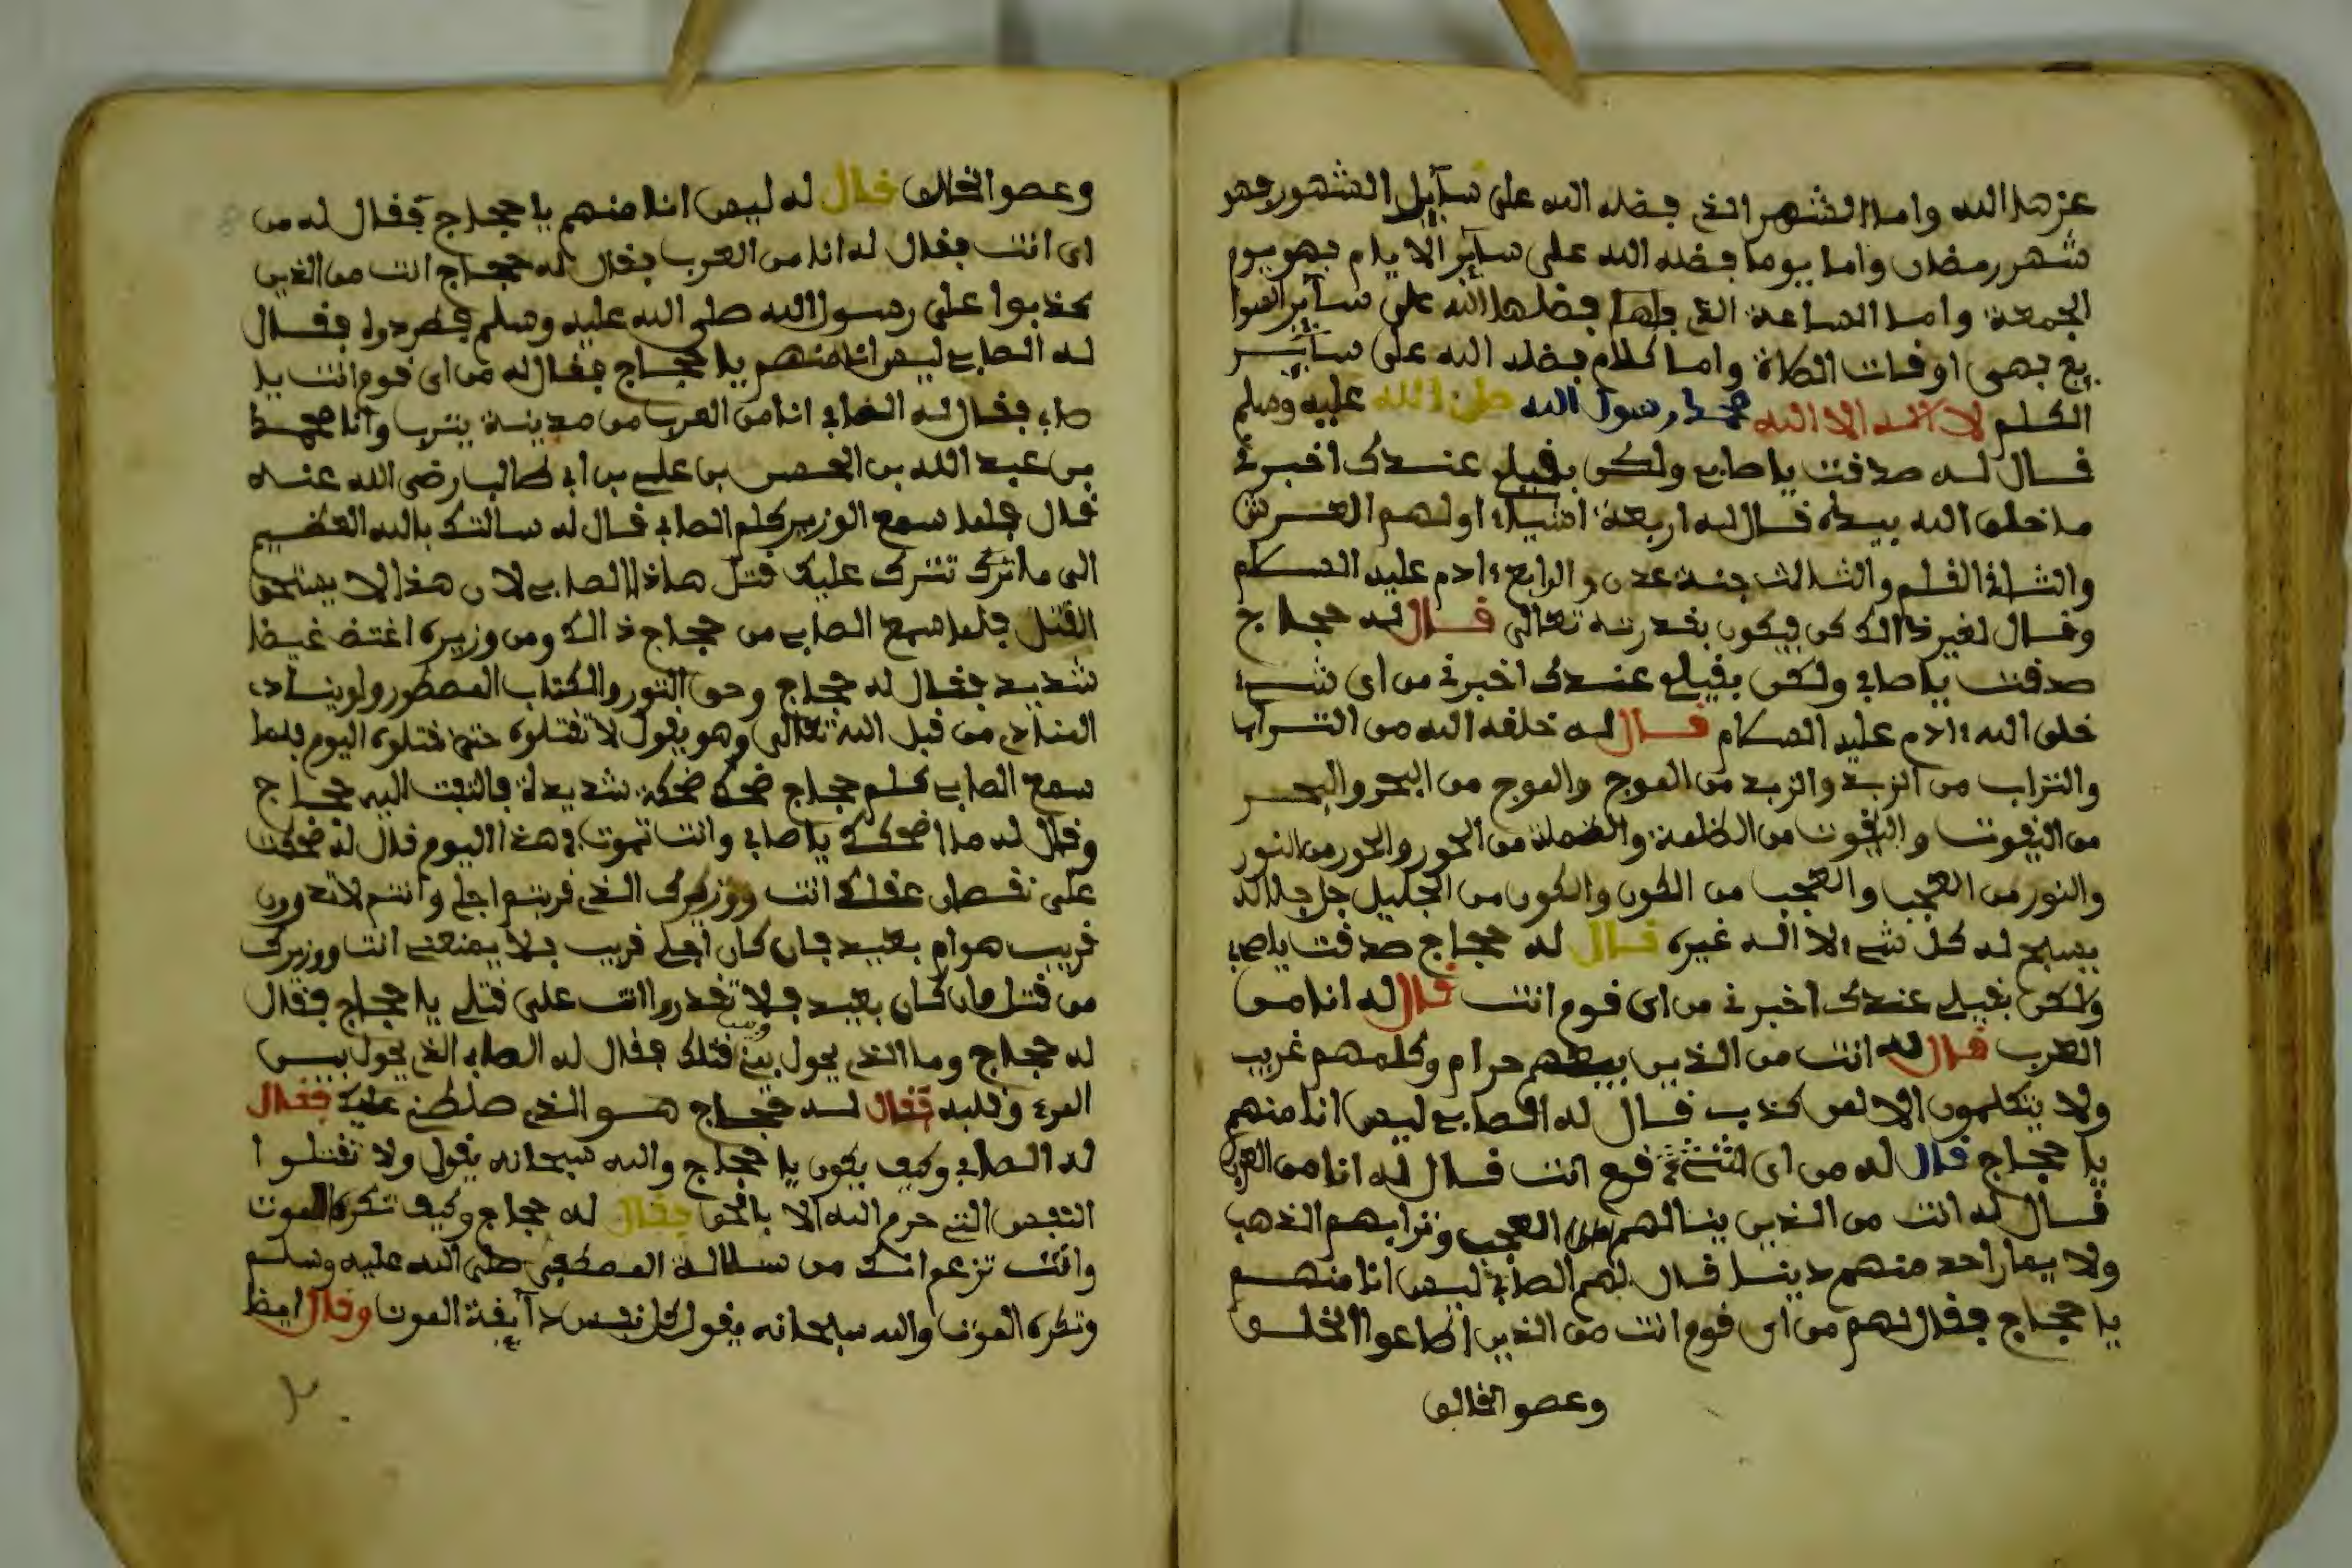 عزها الله واما الشهر الذي فضله الله على سآيل الشهور فهو
شهر رمضان واما يوما فضله الله على سآئر الايام فهو يوم
الجمعة واما الساعة التي فضلها الله على سآئر
فهي اوقات الصلاة واما كلام فضله الله على سآئر
الكلم لا اله الا الله محمد رسول الله صلى الله عليه وسلم
قال له صدقت يا صابي ولكن بقيلي عندك اخبرني
ما خلق الله بيده قال له اربعة اشياء اولهم العرش
والثاني القلم والثالث جنة عدن والرابع ءادم عليه السلام
وقال لغير ذالك كن فيكون بقدرته تعالى قال له حجاج
صدقت يا صابي ولكن بقيلي عندك اخبرني من اي شيء
خلق الله ءادم عليه السلام قال له خلقه الله من التراب
والتراب من الزبد والزبد من الموج والموج من البحر والبحر
من اليقوت واليقوت من الظلمة والظملة من الحور والحور من النور
والنور من العجب والعجب من الكون والكون من الجليل جل جلاله
يسبح له كل شيء لا اله غيره قال له حجاج صدقت يا صابي
ولكن بقيلي عندك اخبرني من اي قوم انت قال له انا من
العرب قال له انت من الذين بيطهم حرام وكلمهم غريب
ولا يتكلمون الا لعن كذب قال له الصابي ليس انا منهم
يا حجاج قال له من اي قوم انت قال له انا من العرب
قال له انت من الذين ينسالهم من العجب وترابهم الذهب
ولا يمار احد منهم دينا قال لهم الصابي ليس انا منهم
يا حجاج فقال لهم من اي قوم انت من الذين اطاعوا الخلق
وعصو الخالق
وعصو الخالق قال له ليس انا منهم يا حجاج فقال له من
اي انت فقال له انا من العرب فقال له حجاج انت من الذين
كذبوا على رسول الله صلى الله عليه وسلم فطردوا فقال
له الصابي ليس انا منهم يا حجاج فقال له من اي قوم انت يا
صابي فقال له الصابي انا من العرب من مدينة يثرب وانا محمد
بن عبد الله بن الحسن بن علي بن ابي طالب رضي الله عنه
قال فلما سمع الوزير كلم الصابي قال له سالتك بالله العظيم
الى ما ترك تترك عليك قتل هاذا الصابي لان هذا لا يستحق
القتل فلما سمع الصابي من حجاج ذالك ومن وزيره اغتض غيضا
شديد فقال له حجاج وحق النور والكتاب المسطور ولو ينادي
المنادي من قبل الله تعالى وهو يقول لا تقتلوه حتما قتلوه اليوم فلما
سمع الصابي كلم حجاج ضحك ضحكة شديدة فالتفت اليه حجاج
وقال له ما اضحكك يا صابي وانت تموت في هذا اليوم قال له ضحكت
على نقصان عقلك انت ووزيرك الذي قربتم اجلي وانتم لا تدرون
قريب هو ام بعيد فان كان اجلي قريب فلا يمنعني انت ووزيرك
من قتل وان كان بعيد فلا تقدروا انت على قتلي يا حجاج فقال
له حجاج وما الذي يحول بيني وبين قتلك فقال له الصابي الذي يحول بين
المرء وقلبه فقال له حجاج هو الذي صلطني عليك فقال
له الصابي وكيف يكون يا حجاج والله سبحانه يقول ولا تقتلوا
النفس التي حرم الله الا بالحق فقال له حجاج وكيف تكره الموت
وانت تزعم انك من سلالة المصطفى صلى الله عليه وسلم
وتكره الموت والله سبحانه يقول كل نفس دآيقة الموت وقال ايضا